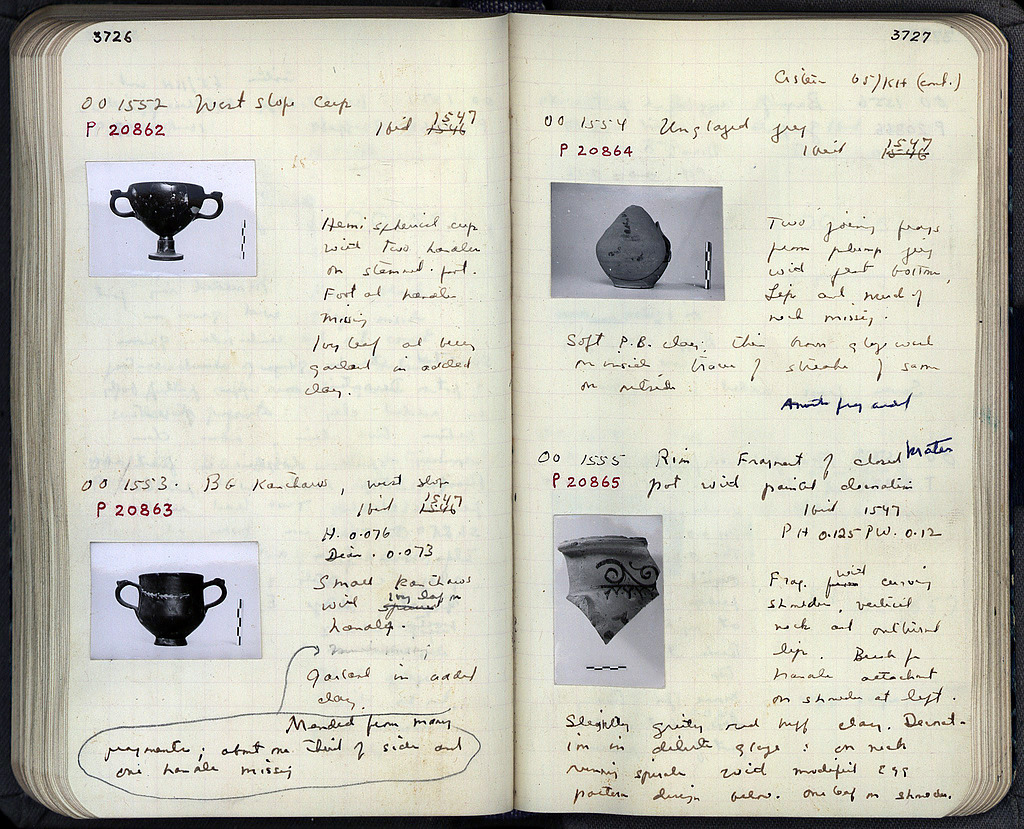 3726
OO 1552 West slope cup
P 20862
Ibid 1546 1547
Hemispherical cup
with two handles
on stemmed foot.
Foot and handle
missing
Ivy leaf and berry
garland in added
clay.
OO 1553. BG Kantharos, West slope
P 20863
Ibid 1546 1547
H. 0.076
Diam. 0.073
Small kantharos
with ivy leaf on
handles.
Garland in added
clay.
Mended from many
fragments; about one third of side and
one handle missing
3727
Cistern 05/KH (cont.)
OO 1554 Unglazed jug
P 20864
Ibid 1546 1547
Two joining frags
from plump jug
with flat bottom
Lip and much of
neck missing.
Soft P.B. clay: thin brown glaze wash
on inside traces of streaks of same
on outside.
Another frag added
OO 1555 Rim Fragment of closed krater
P 20865 pot with painted decoration
Ibid 1547
PH 0.125 PW. 0.12
Frag. from with curving
shoulder, vertical
neck and outturned
lip. Break for
handle attachment
on shoulder at left.
Slightly gritty red buff clay. Decorat-
ion in dilute glaze: on neck
running spirals with modified egg
pattern design below. One leaf on shoulder.